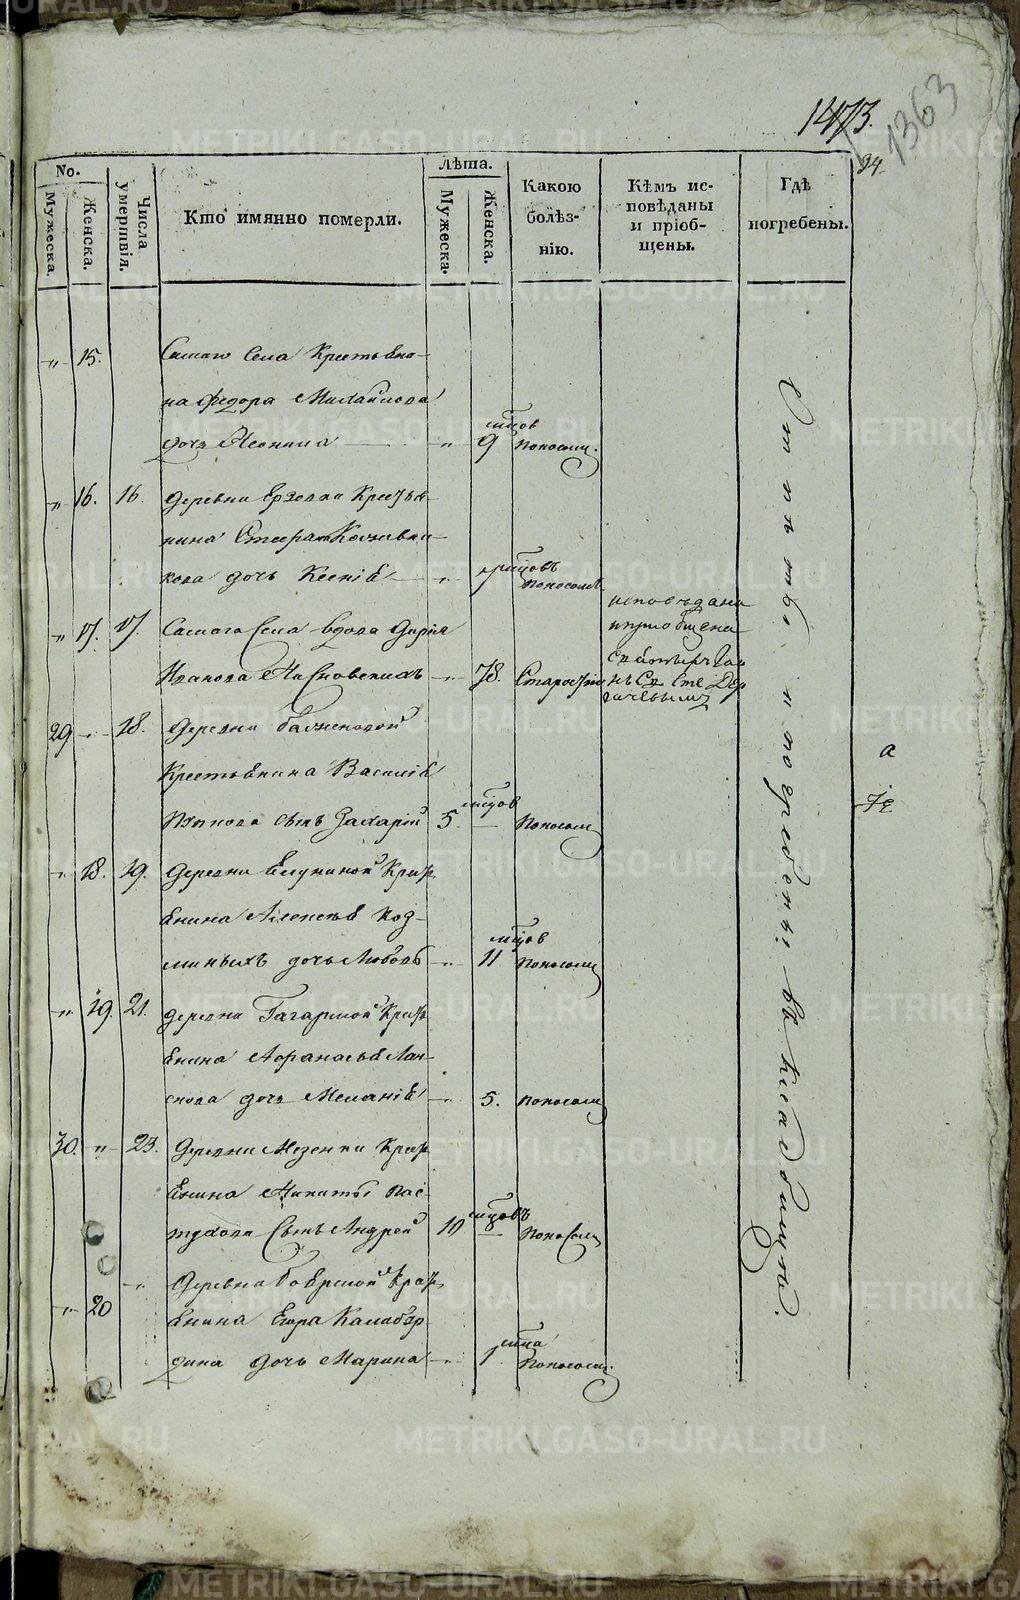 1473.
1363
94.
No.
Мужеска.
Женска.
Числа умертвія.
Кто имянно померли.
Лѣта.
Мужеска.
Женска.
Какою болѣз-
нію.
Кѣмъ ис-
повѣданы
и пріоб-
щены.
Гдѣ
погребены.
„ 15.
Самаго Села Крестьяни-
на Федора Михайлова
дочь „ 9 мцов Поносом.
„ 16. 16. деревни Крестья-
нина
кова дочь Ксенія „ мцовъ Поносомъ
„ 17. 17. Самаго Села вдова Дарья
Иванова „ 78. Старостію
исповѣдана
и приобщена
29 „ 18. деревни
Крестьянина Василія
сынъ Захарій 5 мцов Поносом
„ 18. 19. деревни Елкиной Крест
янина Алексѣя Коз-
миныхъ дочь Любовь „ 11 мцов Поносом
„ 19. 21. деревни Гагарской Крест
янина Афанасья Лан-
скова дочь Меланія „ 5. поносом
30. „ 23. деревни Мезенки Крест
янина Никиты Пас-
тухова Сынъ Андрей 10 мцовъ Поносом
„ 20 „ деревни Боярской Крест
янина Егора Калабур
дина дочь Марина „ 1 мца Поносом.
Отпѣты и погребены на Кладбищѣ.
а